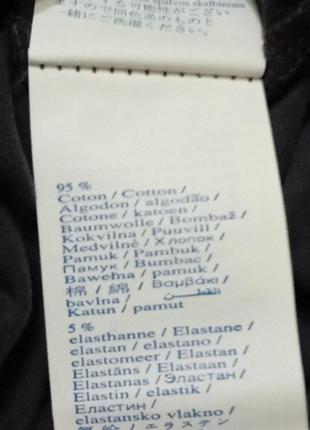 する可能性がござい spalvos skalbiniais
ますので同色系のものと
一緒にご洗濯ください。
95 %
Coton / Cotton /
Algodon / algodão /
Cotone / katoen /
Baumwolle / Bombaž /
Kokvilna / Puuvill /
Medvilnė / Хлопок /
Pamuk / Pambuk /
Памук / Bumbac /
Bawełna / pamuk /
棉 / 綿 / Βαμβάκι /
bavlna / القطن
Katun / pamut
5 %
elasthanne / Elastane /
elastan / elastano /
elastomeer / Elastan /
Elastāns / Elastaan /
Elastanas / Эластан /
Elastin / elastik /
Еластин /
elastansko vlakno /
エラステン /